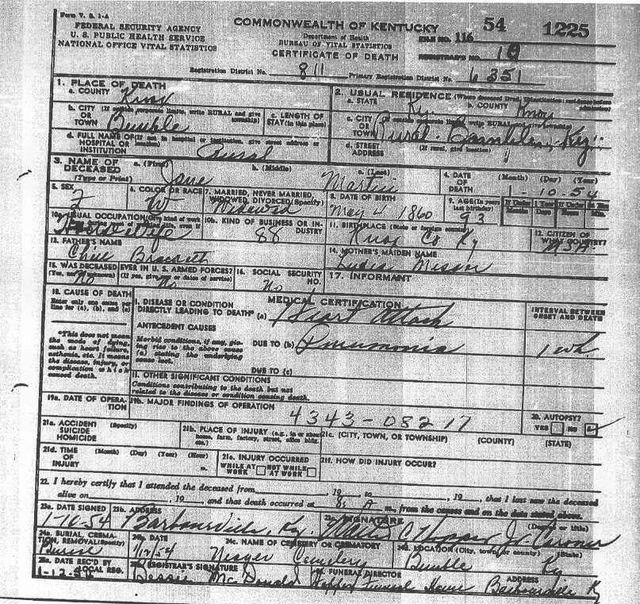 Form V. S. 1-A
FEDERAL SECURITY AGENCY
U. S. PUBLIC HEALTH SERVICE
NATIONAL OFFICE VITAL STATISTICS
COMMONWEALTH OF KENTUCKY
Department of Health
BUREAU OF VITAL STATISTICS
CERTIFICATE OF DEATH
FILE NO. 116 54 1225
REGISTRAR'S NO. 10
Registration District No. 811 Primary Registration District No. 6351
1. PLACE OF DEATH
a. COUNTY Knox
b. CITY OR TOWN Bimble
c. LENGTH OF STAY (in this place)
d. FULL NAME OF HOSPITAL OR INSTITUTION Rural
2. USUAL RESIDENCE
a. STATE Ky b. COUNTY Knox
c. CITY OR TOWN Rural Ky
d. STREET ADDRESS (If rural, give location)
3. NAME OF DECEASED (Type or Print)
a. (First) b. (Middle) c. (Last)
Jane Martin
4. DATE OF DEATH (Month) (Day) (Year)
1-10-54
5. SEX F
6. COLOR OR RACE W
7. MARRIED, NEVER MARRIED, WIDOWED, DIVORCED (Specify) Widowed
8. DATE OF BIRTH May 4 1860
9. AGE (In years last birthday) 93
10a. USUAL OCCUPATION Housewife
10b. KIND OF BUSINESS OR INDUSTRY 88
11. BIRTHPLACE (State or foreign country) Knox Co Ky
12. CITIZEN OF WHAT COUNTRY? USA
13. FATHER'S NAME
14. MOTHER'S MAIDEN NAME
15. WAS DECEASED EVER IN U. S. ARMED FORCES? No
16. SOCIAL SECURITY NO. No
17. INFORMANT
18. CAUSE OF DEATH
Enter only one cause per line for (a), (b), and (c)
*This does not mean the mode of dying, such as heart failure, asthenia, etc. It means the disease, injury, or complication which caused death.
MEDICAL CERTIFICATION
INTERVAL BETWEEN ONSET AND DEATH
I. DISEASE OR CONDITION DIRECTLY LEADING TO DEATH* (a) Heart Attack
ANTECEDENT CAUSES
Morbid conditions, if any, giving rise to the above cause (a) stating the underlying cause last.
DUE TO (b) Pneumonia 1 wk
DUE TO (c)
II. OTHER SIGNIFICANT CONDITIONS
Conditions contributing to the death but not related to the disease or condition causing death.
19a. DATE OF OPERATION
19b. MAJOR FINDINGS OF OPERATION
4343-08217
20. AUTOPSY?
YES NO
21a. ACCIDENT SUICIDE HOMICIDE (Specify)
21b. PLACE OF INJURY (e.g., in or about home, farm, factory, street, office bldg., etc.)
21c. (CITY, TOWN, OR TOWNSHIP) (COUNTY) (STATE)
21d. TIME OF INJURY (Month) (Day) (Year) (Hour) m.
21e. INJURY OCCURRED
WHILE AT WORK NOT WHILE AT WORK
21f. HOW DID INJURY OCCUR?
22. I hereby certify that I attended the deceased from , 19 to , 19 , that I last saw the deceased
alive on , 19 and that death occurred at m., from the causes and on the date stated above.
23a. DATE SIGNED 1-10-54
23b. ADDRESS Barbourville, Ky
23c. SIGNATURE (Degree or title) Hopper Jr. Coroner
24a. BURIAL, CREMATION, REMOVAL (Specify) Burial
24b. DATE 1/12/54
24c. NAME OF CEMETERY OR CREMATORY Cemetery
24d. LOCATION (City, town, or county) (State) Bimble Ky
25a. DATE REC'D BY LOCAL REG. 1-12-54
25b. REGISTRAR'S SIGNATURE Bessie McDonald
26. FUNERAL DIRECTOR ADDRESS
Hopper Funeral Home Barbourville Ky